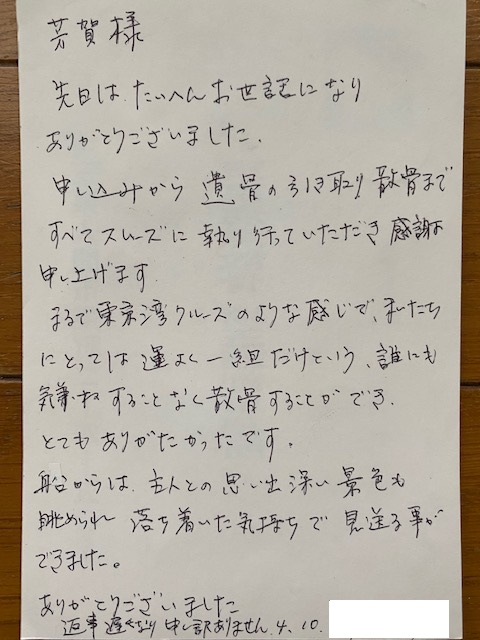 芳賀様
先日は たいへん お世話になり
ありがとうございました.
申し込みから 遺骨の引き取り 散骨まで
すべてスムーズに 執り行っていただき 感謝
申し上げます
まるで東京湾クルーズのような感じで、私たち
にとっては 運よく 一組だけという、誰にも
気兼ねすることなく散骨することができ.
とてもありがたかったです。
船からは、主人との思い出深い景色も
眺められ 落ち着いた気持ちで 見送る事が
できました。
ありがとうございました
返事遅くなり 申し訳ありません. 4. 10.